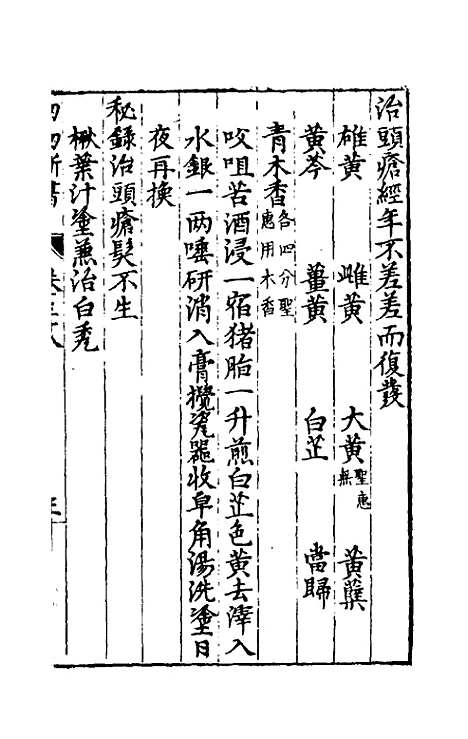 治頭瘡經年不差差而復發
雄黃 雌黃 大黃聖惠無 黃蘗
黃芩 薑黃 白芷 當歸
青木香各四分聖惠用木香
㕮咀苦酒浸一宿猪脂一升煎白芷色黃去滓入
水銀一两唾研消入膏攪瓷器收皁角湯洗塗日
夜再換
秘錄治頭瘡髮不生
楸葉汁塗兼治白秃